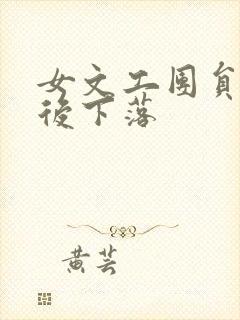 女文工團員
後下落
黄芸